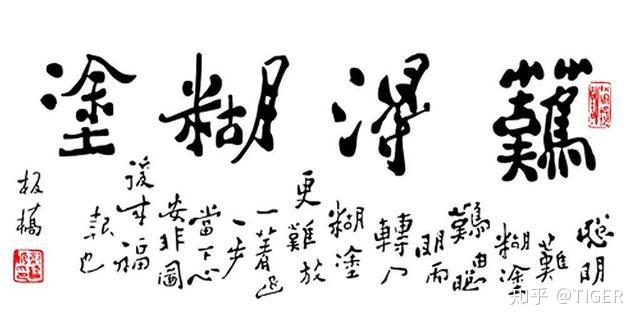 難得糊塗
聰明
難
糊塗
難由聰
明而
轉入
糊塗
更難放
一著退
一步
當下心
安非圖
後來福
報也
板橋
知乎 @TIGER